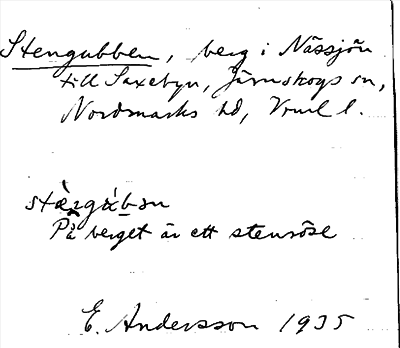 Stengubben, berg i Nässjön
till Saxebyn, Järnskogs sn,
Nordmarks hd, Vrml l.
På berget är ett stensröse
E. Andersson 1935